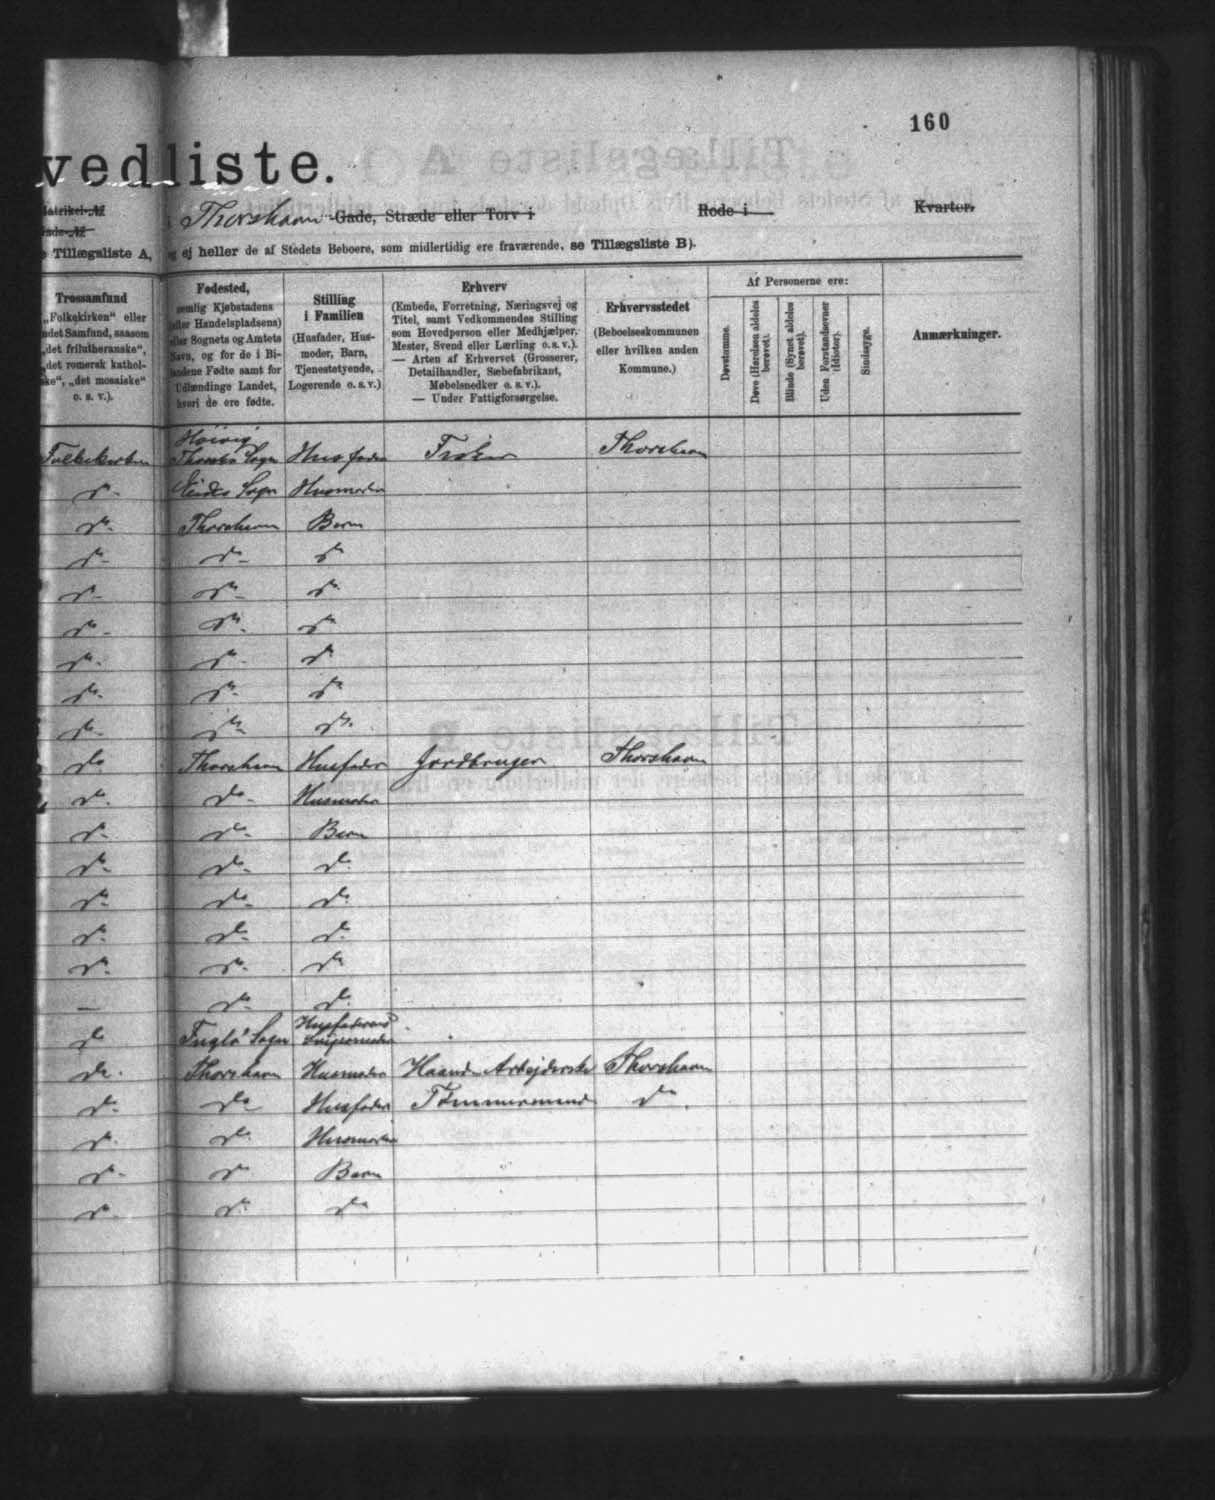 160
vedliste.
Matrikel-№
i Thorshavn Gade, Stræde eller Torv i Rode i Kvarter.
Tillægsliste A, og ej heller de af Stedets Beboere, som midlertidig ere fraværende, se Tillægsliste B).
Trossamfund
„Folkekirken“ eller
ndet Samfund, saasom
„det frilutheranske“,
„det romersk kathol-
ske“, „det mosaiske“
o. s. v.).
Fødested,
nemlig Kjøbstadens
(eller Handelspladsens)
eller Sognets og Amtets
Navn, og for de i Bi-
landene Fødte samt for
Udlændinge Landet,
hvori de ere fødte.
Stilling
i Familien
(Husfader, Hus-
moder, Barn,
Tjenestetyende,
Logerende o. s. v.)
Erhverv
(Embede, Forretning, Næringsvej og
Titel, samt Vedkommendes Stilling
som Hovedperson eller Medhjælper,
Mester, Svend eller Lærling o. s. v.).
— Arten af Erhvervet (Grosserer,
Detailhandler, Sæbefabrikant,
Møbelsnedker o. s. v.).
— Under Fattigforsørgelse.
Erhvervsstedet
(Beboelseskommunen
eller hvilken anden
Kommune.)
Af Personerne ere:
Døvstumme.
Døve (Hørelsen aldeles
berøvet).
Blinde (Synet aldeles
berøvet).
Uden Forstandsevner
(Idioter).
Sindssyge.
Anmærkninger.
Høivig
Folkekirken Sogn Husfader Fisker Thorshavn
do Eides Sogn Husmoder
do Thorshavn Barn
do do do
do do do
do do do
do do do
do do do
do do do
do Thorshavn Husfader Jordbruger Thorshavn
do do Husmoder
do do Barn
do do do
do do do
do do do
do do do
— do do
do Fuglø Sogn Husfaderens
do Thorshavn Husmoder Haand Arbejderske Thorshavn
do do Husfader Tømmermand do
do do Husmoder
do do Barn
do do do